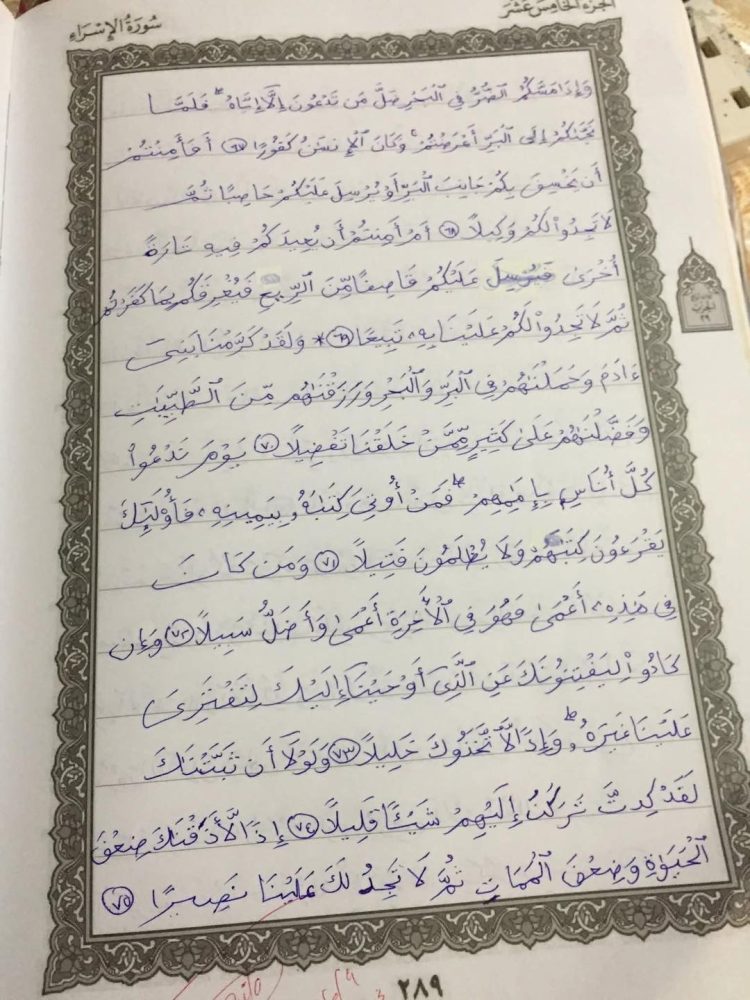 الجزء الخامس عشر
سورة الإسراء
وَإِذَا مَسَّكُمُ الضُّرُّ فِي الْبَحْرِ ضَلَّ مَن تَدْعُونَ إِلَّا إِيَّاهُ ۖ فَلَمَّا
نَجَّىٰكُمْ إِلَى الْبَرِّ أَعْرَضْتُمْ ۚ وَكَانَ الْإِنسَٰنُ كَفُورًا ٦٧ أَفَأَمِنتُمْ
أَن يَخْسِفَ بِكُمْ جَانِبَ الْبَرِّ أَوْ يُرْسِلَ عَلَيْكُمْ حَاصِبًا ثُمَّ
لَا تَجِدُوا۟ لَكُمْ وَكِيلًا ٦٨ أَمْ أَمِنتُمْ أَن يُعِيدَكُمْ فِيهِ تَارَةً
أُخْرَىٰ فَيُرْسِلَ عَلَيْكُمْ قَاصِفًا مِّنَ الرِّيحِ فَيُغْرِقَكُم بِمَا كَفَرْتُمْ
ثُمَّ لَا تَجِدُوا۟ لَكُمْ عَلَيْنَا بِهِۦ تَبِيعًا ٦٩ * وَلَقَدْ كَرَّمْنَا بَنِىٓ
ءَادَمَ وَحَمَلْنَٰهُمْ فِي الْبَرِّ وَالْبَحْرِ وَرَزَقْنَٰهُم مِّنَ الطَّيِّبَٰتِ
وَفَضَّلْنَٰهُمْ عَلَىٰ كَثِيرٍ مِّمَّنْ خَلَقْنَا تَفْضِيلًا ٧٠ يَوْمَ نَدْعُوا۟
كُلَّ أُنَاسٍ بِإِمَٰمِهِمْ ۖ فَمَنْ أُوتِىَ كِتَٰبَهُۥ بِيَمِينِهِۦ فَأُو۟لَٰٓئِكَ
يَقْرَءُونَ كِتَٰبَهُمْ وَلَا يُظْلَمُونَ فَتِيلًا ٧١ وَمَن كَانَ
فِي هَٰذِهِۦٓ أَعْمَىٰ فَهُوَ فِي الْءَاخِرَةِ أَعْمَىٰ وَأَضَلُّ سَبِيلًا ٧٢ وَإِن
كَادُوا۟ لَيَفْتِنُونَكَ عَنِ الَّذِىٓ أَوْحَيْنَآ إِلَيْكَ لِتَفْتَرِىَ
عَلَيْنَا غَيْرَهُۥ ۖ وَإِذًا لَّٱتَّخَذُوكَ خَلِيلًا ٧٣ وَلَوْلَآ أَن ثَبَّتْنَٰكَ
لَقَدْ كِدتَّ تَرْكَنُ إِلَيْهِمْ شَيْـًٔا قَلِيلًا ٧٤ إِذًا لَّأَذَقْنَٰكَ ضِعْفَ
الْحَيَوٰةِ وَضِعْفَ الْمَمَاتِ ثُمَّ لَا تَجِدُ لَكَ عَلَيْنَا نَصِيرًا ٧٥
٢٨٩